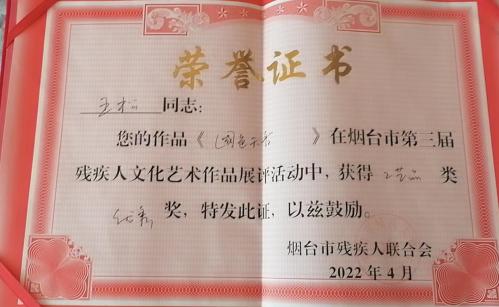 荣誉证书
王松 同志：
您的作品《国色天香》在烟台市第三届
残疾人文化艺术作品展评活动中，获得 工艺品 类
优秀 奖，特发此证，以兹鼓励。
烟台市残疾人联合会
2022 年 4 月